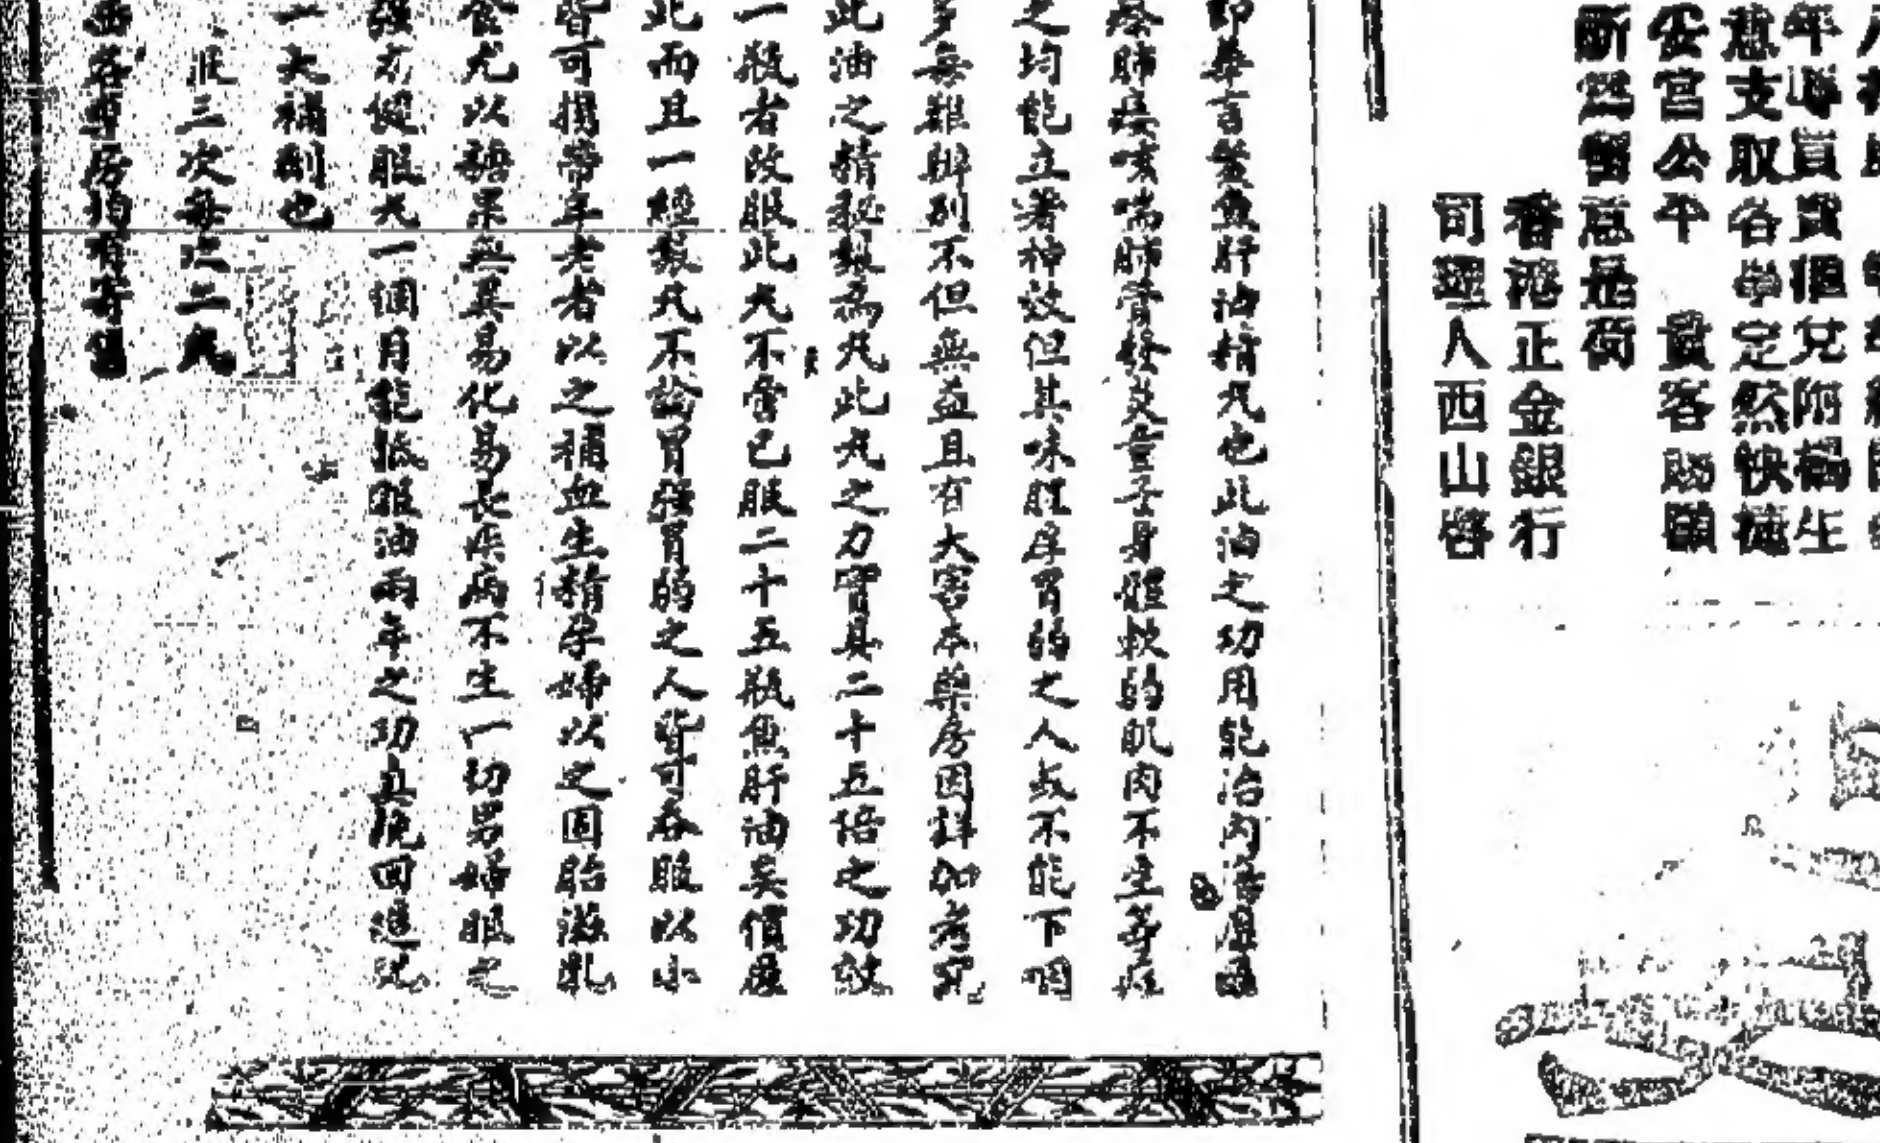 年導買賣但兌附揭生
意支取各學定然快捷
妥宮公平 貴客賜顧
斷無響意是荷
香港正金銀行
司理人西山啓
即華言鰵魚肝油精丸也此油之功用能治內傷虛
癆肺痰咳喘肺管發炎童子身體軟弱肌肉不生等症
之均能立著神效但其味腥厚胃弱之人或不能下咽
多無難辦別不但無益且有大害本藥房因詳加考究
此油之精秘製爲丸此丸之力實具二十五倍之功效
一瓶者改服此丸不啻已服二十五瓶魚肝油矣價廉
此而且一經製丸不論胃強胃弱之人皆可吞服以小
皆可攜帶年老者以之補血生精孕婦以之固胎滋乳
食尤以糖果無異易化易長疾病不生一切男婦服之
強方健服丸一個月能抵服油兩年之功真挽回造化
一大補劑也
服三次每次二丸
各埠房均有寄售